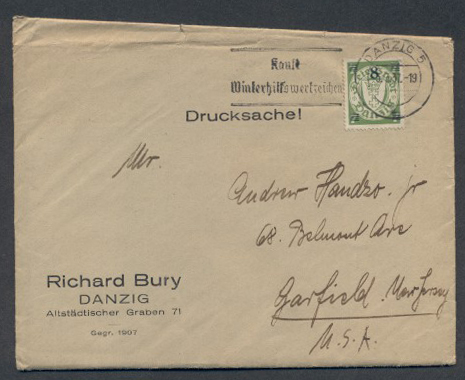 DANZIG 5
Kauft
Winterhilfswertzeichen
8
-19
Drucksache!
Mr.
Andrew Handzo. jr
68. Belmont Ave
Garfield. New Jersey
U.S.A.
Richard Bury
DANZIG
Altstädtischer Graben 71
Gegr. 1907